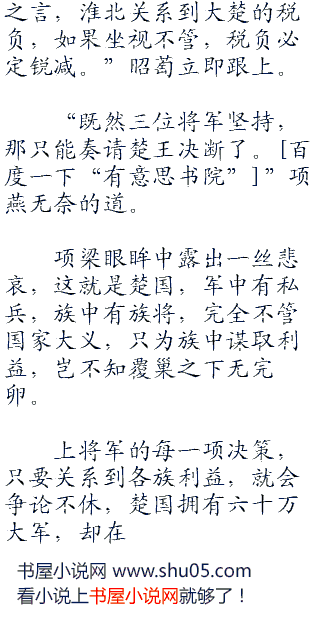 之言，淮北关系到大楚的税
负，如果坐视不管，税负必
定锐减。”昭萄立即跟上。
“既然三位将军坚持，
那只能奏请楚王决断了。[百
度一下“有意思书院”]”项
燕无奈的道。
项梁眼眸中露出一丝悲
哀，这就是楚国，军中有私
兵，族中有族将，完全不管
国家大义，只为族中谋取利
益，岂不知覆巢之下无完
卵。
上将军的每一项决策，
只要关系到各族利益，就会
争论不休，楚国拥有六十万
大军，却在
书屋小说网 www.shu05.com
看小说上书屋小说网就够了！